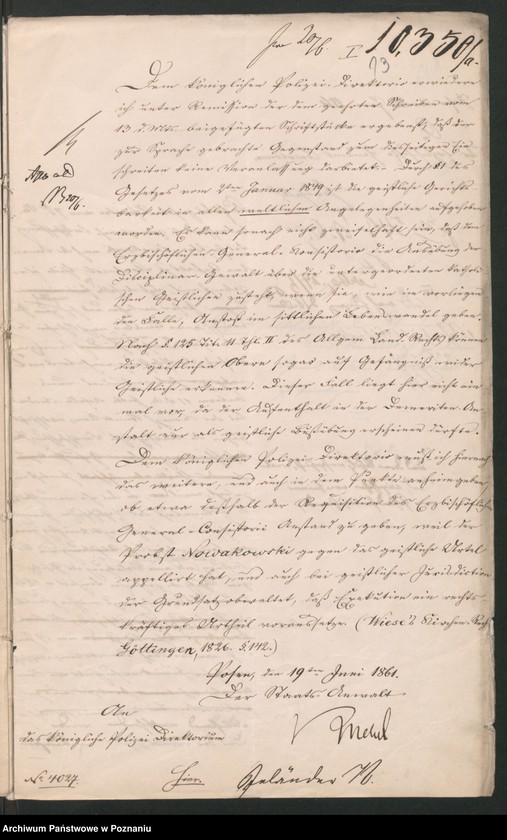 pr 20/6. I 10,350/a.
13
Dem Königlichen Polizei-Direktorio erwiedere
ich unter Remission der dem geehrten Schreiben vom
13 d. Mts. beigefügten Schriftstücke ergebenst, daß der
zur Sprache gebrachte Gegenstand zum diesseitigen Ein-
schreiten keine Veranlassung darbietet. Durch §1 des
Gesetzes vom 2ten Januar 1849 ist die geistliche Gerichts-
barkeit in allen weltlichen Angelegenheiten aufgehoben
worden. Es kann sonach nicht zweifelhaft sein, daß dem
Erzbischöflichen General-Konsistorio die Ausübung der
Disciplinar-Gewalt über die untergeordneten katholi-
schen Geistlichen zusteht, wenn sie, wie im vorliegen-
den Falle, Anstoß im sittlichen Lebenswandel geben.
Nach §. 125 Tit. 11 Thl. II des Allgem. Land-Rechts können
die geistlichen Obern sogar auf Gefängniß wider
Geistliche erkennen. Dieser Fall liegt hier nicht ein-
mal vor, da der Aufenthalt in der Demeriten An-
stalt nur als geistliche Bußübung erscheinen dürfte.
Dem Königlichen Polizei-Direktorio muß ich hiernach
das weitere, und auch in dem Punkte anheim geben,
ob etwa deshalb der Requisition des Erzbischöflichen
General-Consistorii Anstand zu geben, weil der
Probst Nowakowski gegen das geistliche Urtel
appellirt hat, und auch bei geistlicher Jurisdiction
der Grundsatz obwaltet, daß Exekution ein rechts-
kräftiges Urtheil voraussetze. (Wiese's Kirchen-Recht
Göttingen, 1826. §. 142.)
Posen, den 19ten Juni 1861.
Der Staats-Anwalt
An
das Königliche Polizei Direktorium
No. 4027.
Hier.
Archiwum Państwowe w Poznaniu